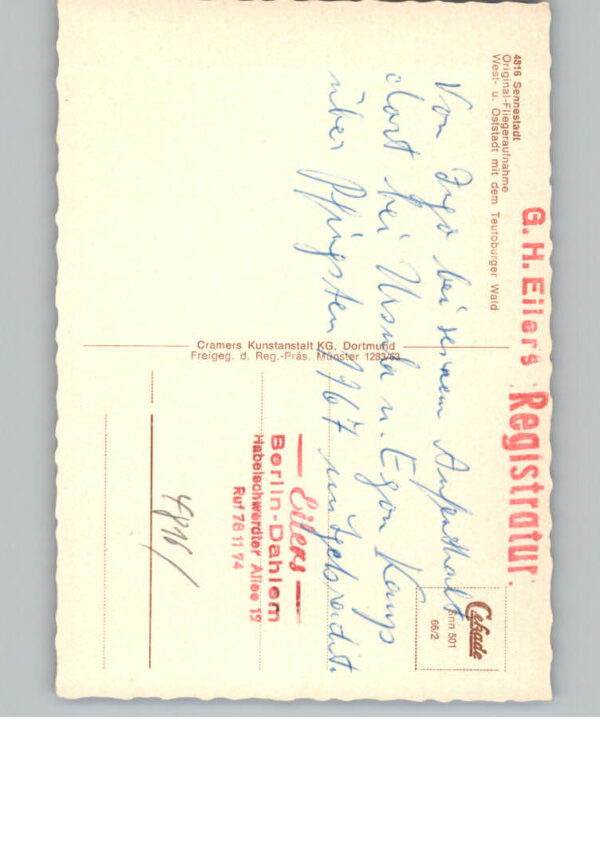 4816 Sennestadt
Original-Fliegeraufnahme
West- u. Oststadt mit dem Teutoburger Wald
G. H. Eilers Registratur.
Von Ingo bei seinem Aufenthalt
dort bei Ursula u. Egon Kamp
über Pfingsten 1967 mitgebracht.
Cramers Kunstanstalt KG, Dortmund
Freigeg. d. Reg.-Präs. Münster 1283/63
Cekade
Snn 501
66/2
Eilers
Berlin-Dahlem
Habelschwerdter Allee 12
Ruf 76 11 74
4816/